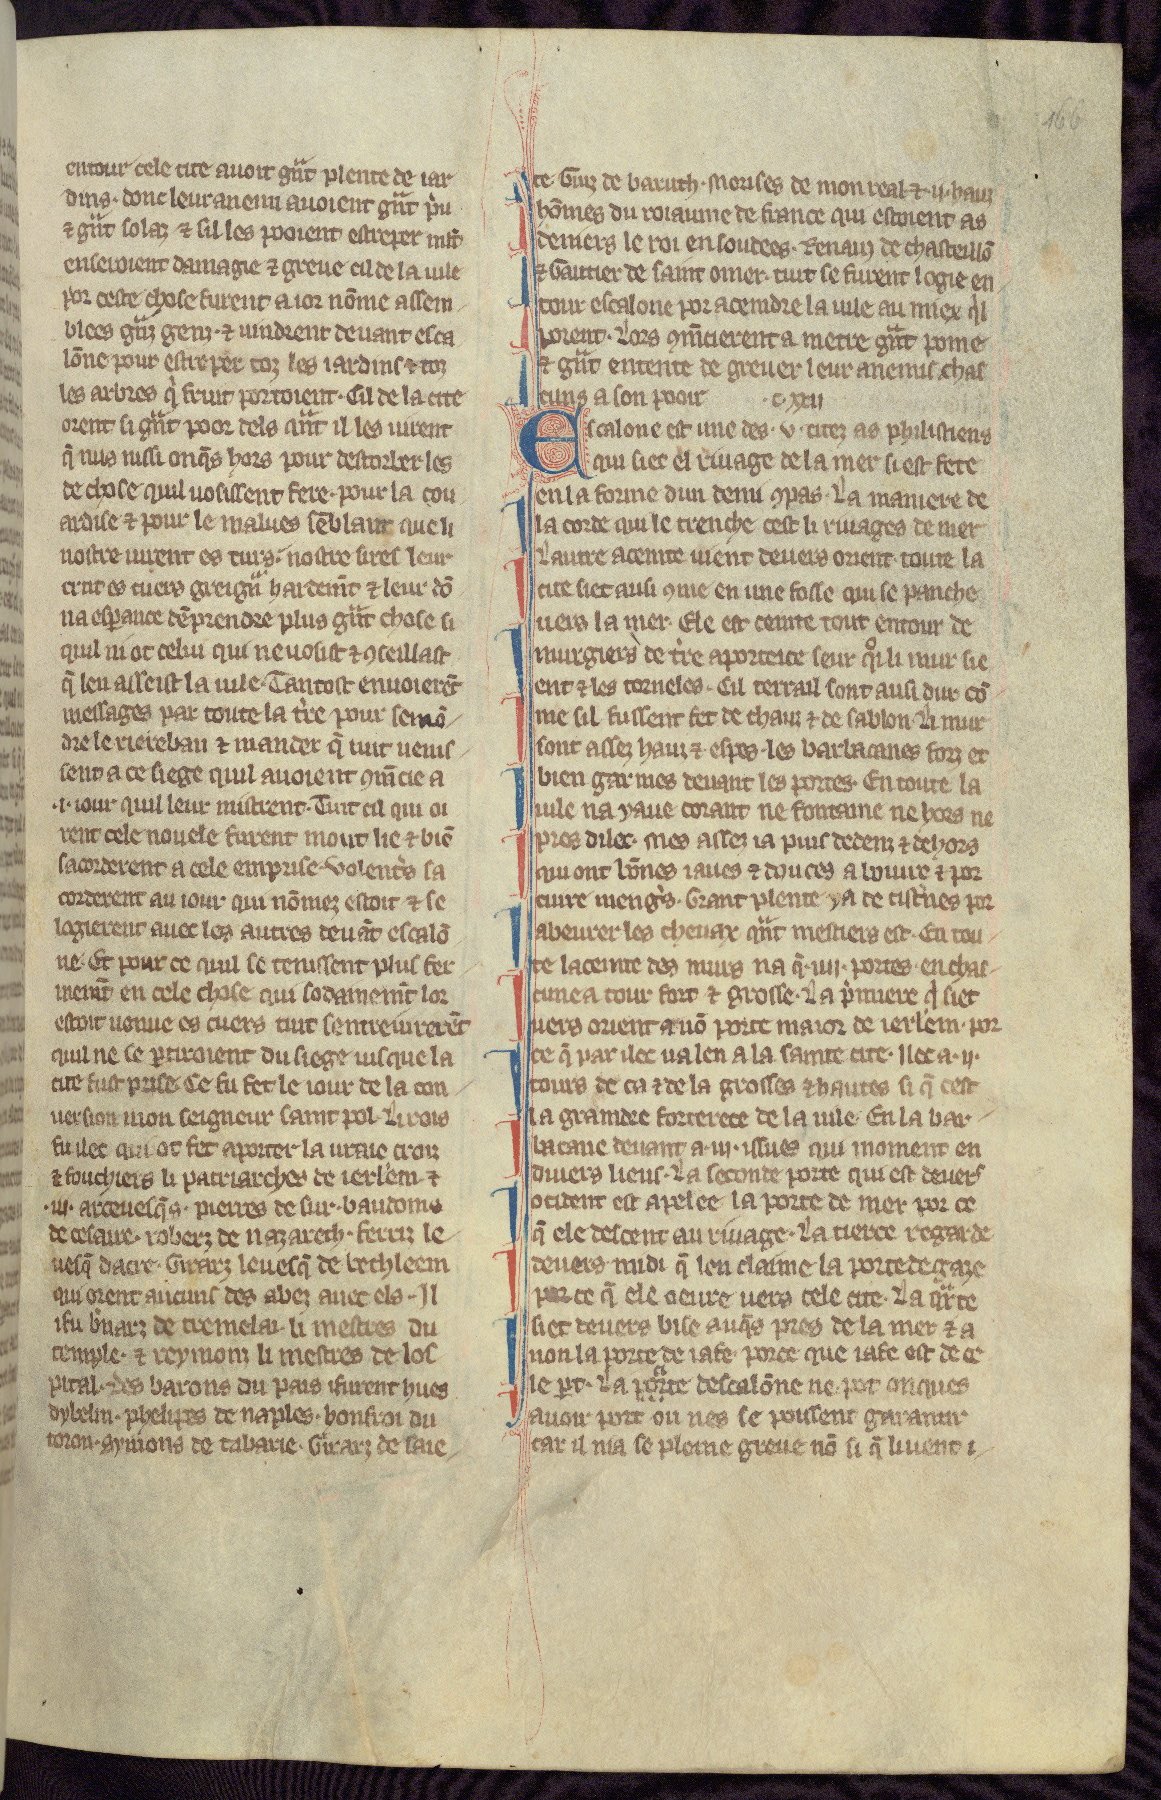 166
entour cele cite auoit gͣnt plente de iar
dins · donc leur anemi auoient gͣnt p̃u
⁊ gͣnt solaz ⁊ sil les pooient estreper mlt̃
enseroient damagie ⁊ greue cil de la uile
por ceste chose furent a ior nõme assem
blees gͣnz genz · ⁊ uindrent deuant esca
lõne pour estreper toz les iardins ⁊ toz
les arbres q̃ fruit portoient · Cil de la cite
orent si gͣnt poor dels qͣnt il les uirent
q̃ nus nissi onq̃s hors pour destorber les
de chose quil uosissent fere · pour la cou
ardise ⁊ pour le malues sẽblant que li
nostre uirent es turs · nostre sires leur
crut es cuers greigñ hardemt̃ ⁊ leur dõ
na esp̃ance dẽprendre plus gͣnt chose si
quil ni ot celui qui ne uosist ⁊ ꝯseillast
q̃ len asseist la uile · Tantost enuoierẽt
messages par toute la t̃re pour semõ
dre le riereban ⁊ mander q̃ tuit uenis
sent a ce siege quil auoient ꝯm̃cie a
· i · iour quil leur mistrent · Tuit cil qui oi
rent cele nouele furent mout lie ⁊ biẽ
sacorderent a cele emprise · Volent̃s sa
corderent au iour qui nõmez estoit ⁊ se
logierent auec les autres deuãt escalõ
ne · Et pour ce quil se tenissent plus fer
memt̃ en cele chose qui sodainemt̃ lor
estoit uenue es cuers tuit sentreiurerẽt
quil ne se ꝑtiroient du siege iusque la
cite fust prise · Ce fu fet le iour de la con
uersion mon seigneur saint pol · Li rois
fu ilec qui ot fet aporter la uraie croiz
⁊ fouchiers li patriarches de ierlem̃ · ⁊
· iii · arceuesq̃s · pierres de sur · baudoins
de cesaire · roberz de nazareth · ferriz le
uesq̃ dacre · Girarz leuesq̃ de bethleem
qui orent aucuns des abez auec els · Il
i fu bñarz de tremelai · li mestres du
temple · ⁊ reymonz li mestres de los
pital · Des barons du pais i furent hues
dybelin · phelipes de naples · honfroi du
toron · symons de tabarie · Girarz de saie
te · Guiz de baruth · Morises de mon real · ⁊ · ii · hauz
hõmes du roiaume de france qui estoient as
deniers le roi en soudees · Renauz de chasteillõ
⁊ Gautier de saint omer · tuit se furent logie en
tour escalone por aceindre la uile au miex q̃l
porent · Lors ꝯm̃cierent a metre gͣnt poine
⁊ gͣnt entente de greuer leur anemis chas
cuns a son pooir · c · xxii
Escalone est une des · v · citez as philistiens
qui siet el riuage de la mer si est fete
en la forme dun demi ꝯpas · La maniere de
la corde qui le trenche cest li riuages de mer
Lautre aceinte uient deuers orient · toute la
cite siet ausi ꝯme en une fosse qui se panche
uers la mer · Ele est ceinte tout entour de
murgiers de t̃re aporteice seur qͦi li mur sie
ent ⁊ les torneles · Cil terrail sont ausi dur cõ
me sil fussent fet de chauz ⁊ de sablon · Li mur
sont assez hauz ⁊ espes · les barbacanes forz et
bien garnies deuant les portes · En toute la
uile na yaue corant ne fontaine ne hors ne
pres dilec · Mes assez i a puis dedenz ⁊ dehors
qui ont bõnes iaues ⁊ douces a boiure ⁊ por
cuire meng̃s · Grant plente y a de cist̃nes por
abeurer les cheuax qͣnt mestiers est · En tou
te laceinte des murs na q̃ · iiii · portes · en chas
cune a tour fort ⁊ grosse · La p̃miere q̃ siet
uers orient a nõ porte maior de ierlem̃ · por
ce q̃ par ilec ua len a la sainte cite · Ilec a · ii ·
tours de ca ⁊ de la grosses ⁊ hautes si q̃ cest
la graindre forterece de la uile · En la bar
bacane deuant a · iii · issues qui moinent en
diuers lieus · La seconde porte qui est deuers
ocident est apelee la porte de mer por ce
q̃ ele descent au riuage · La tierce regarde
deuers midi q̃ len claime la porte de gaze
por ce q̃ ele oeure uers cele cite · La qͣrte
siet deuers bise auq̃s pres de la mer ⁊ a
non la porte de iafe · porce que iafe est de ce
le ꝑt · La porte descalõne ne pot onques
auoir port ou nes se poissent garantir
car il nia se pleine greue nõ si q̃ li uent i